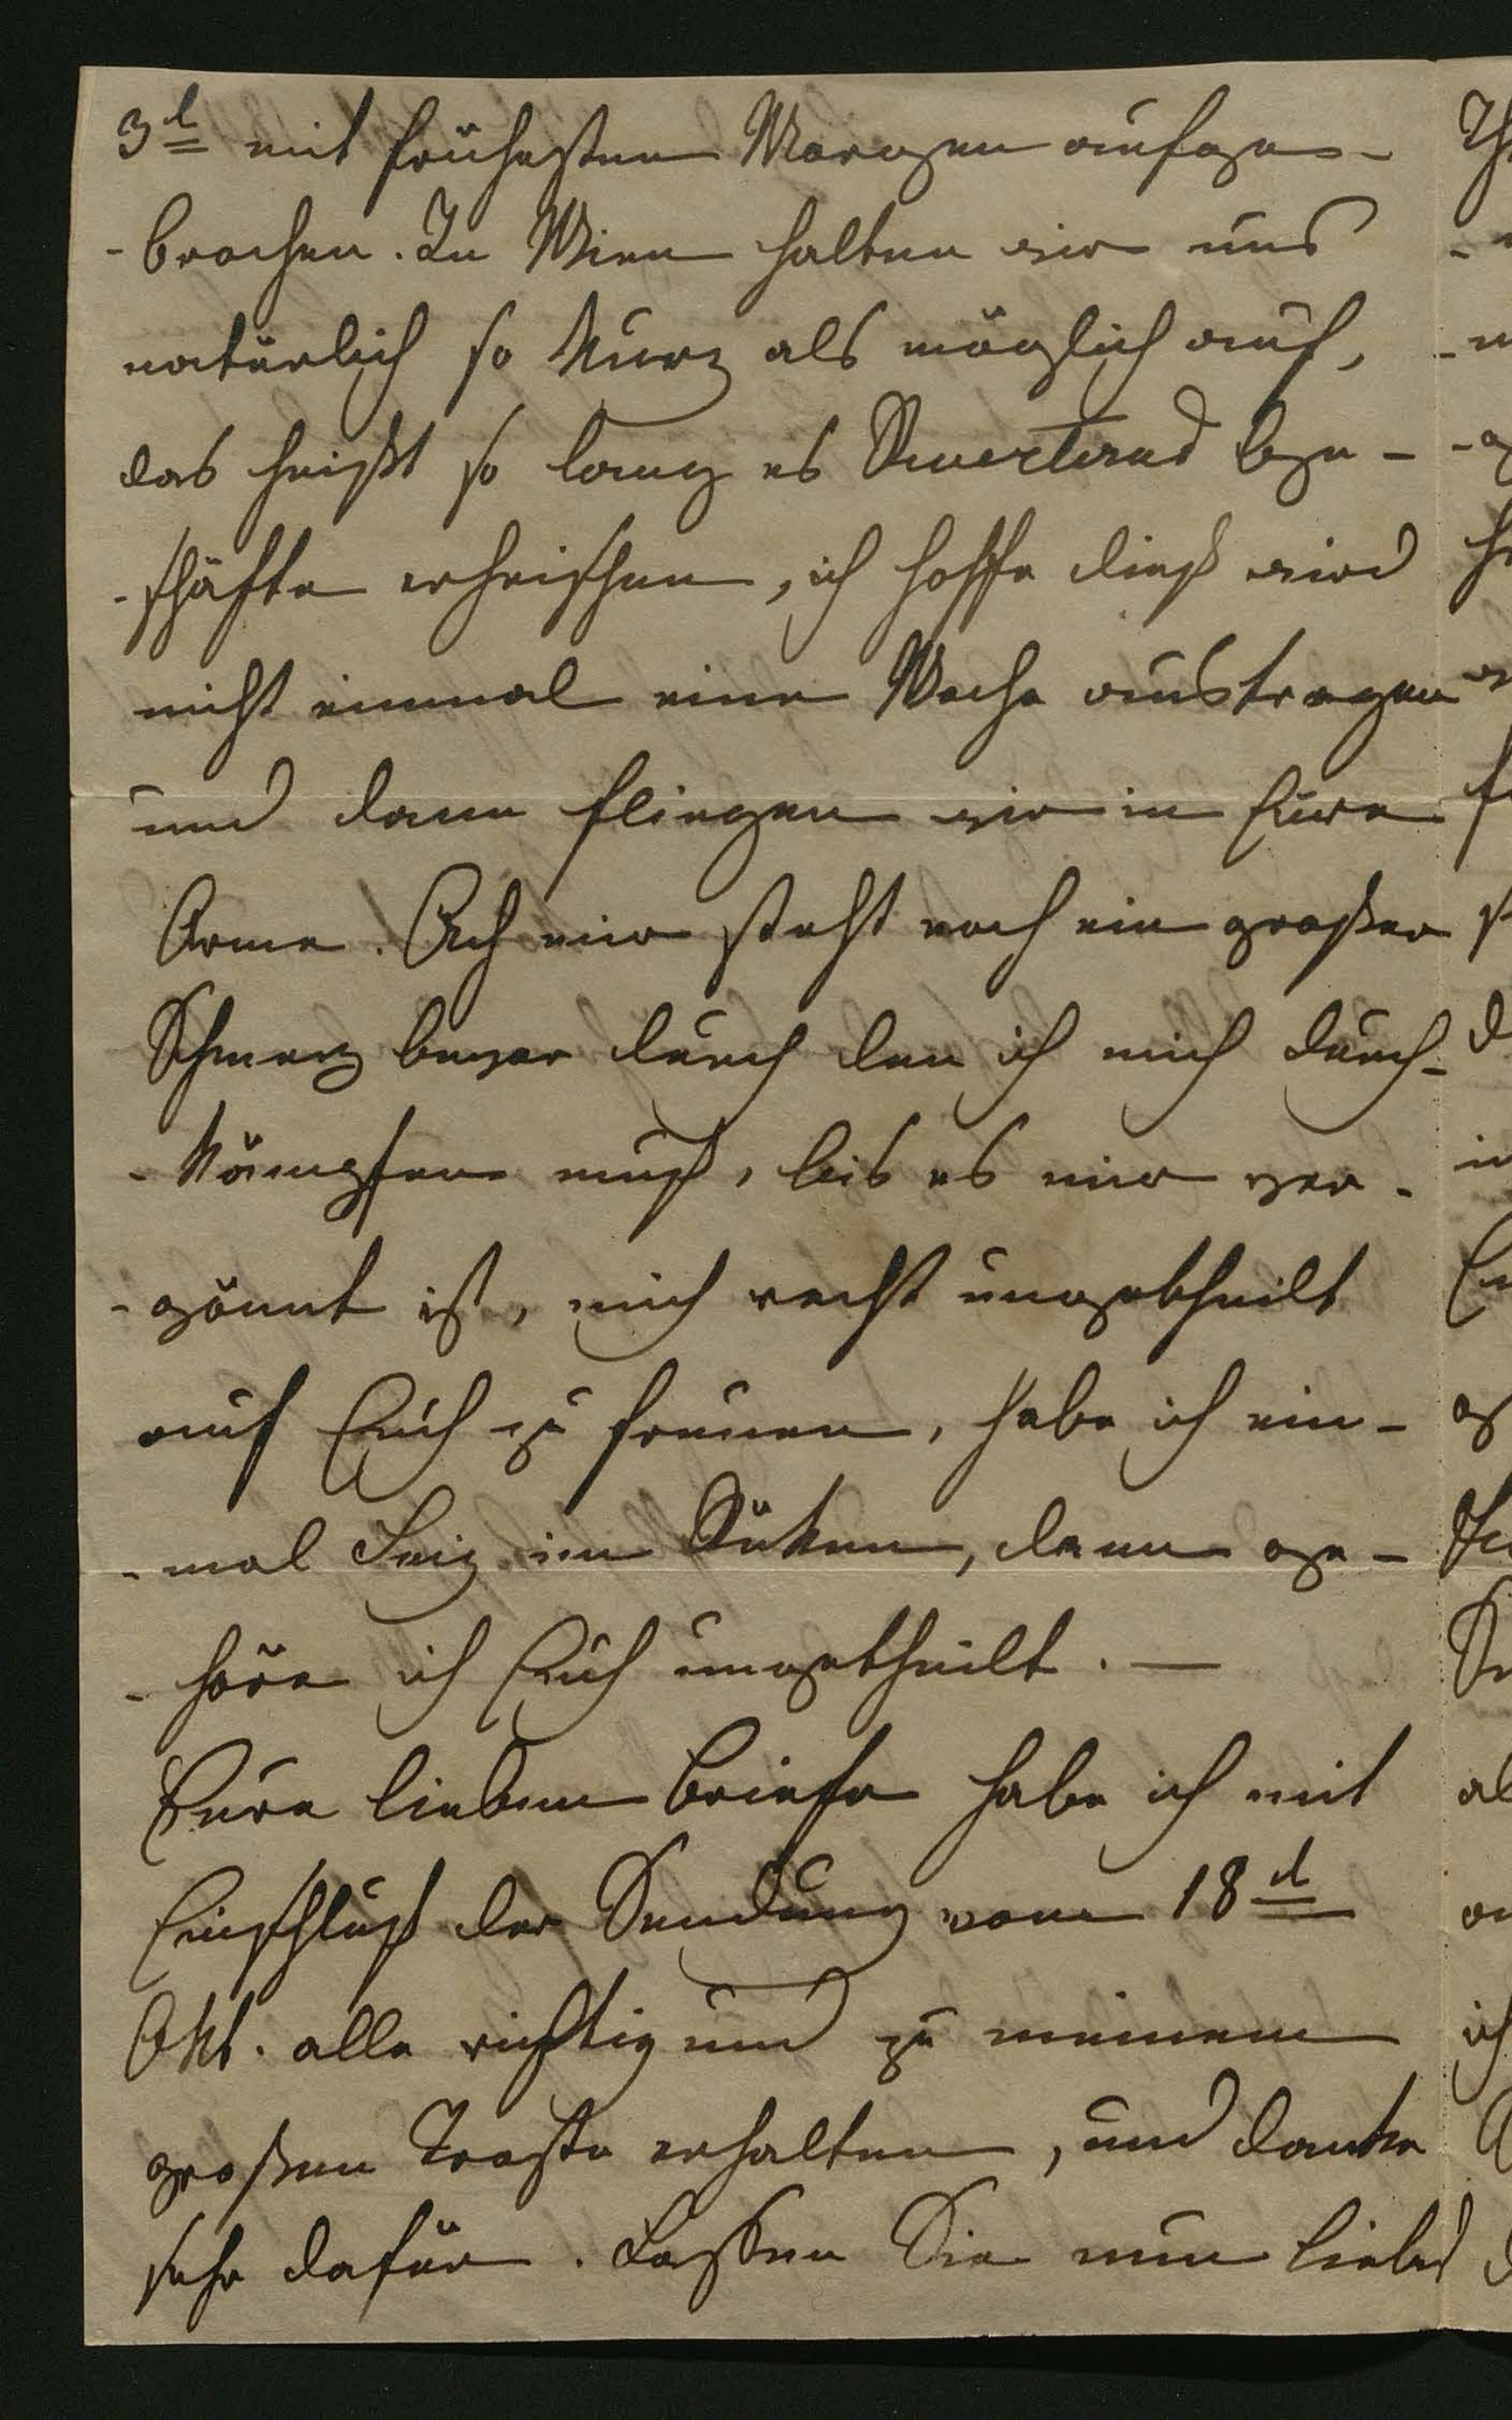 3t mit frühesten Morgen aufge-
-brochen. In Wien halten wir uns
natürlich so kurz als möglich auf,
das heißt so lang es Ge-
-schäfte erheischen, ich hoffe dieß wird
nicht einmal eine Woche austragen
und dann fliegen wir in Eure
Arme. Ach mir steht noch ein großer
Schmerz bevor durch den ich mich durch-
-kämpfen muß, bis es mir ver-
-gönnt ist, mich recht ungetheilt
auf Euch zu freuen, habe ich ein-
-mal im Rüken, dann ge-
-höre ich Euch ungetheilt. —
Eure lieben Briefe habe ich mit
Einschluß der Sendung vom 18t
Okt. alle richtig und zu meinem
großen Troste erhalten, und danke
sehr dafür. Lassen Sie nun liebes